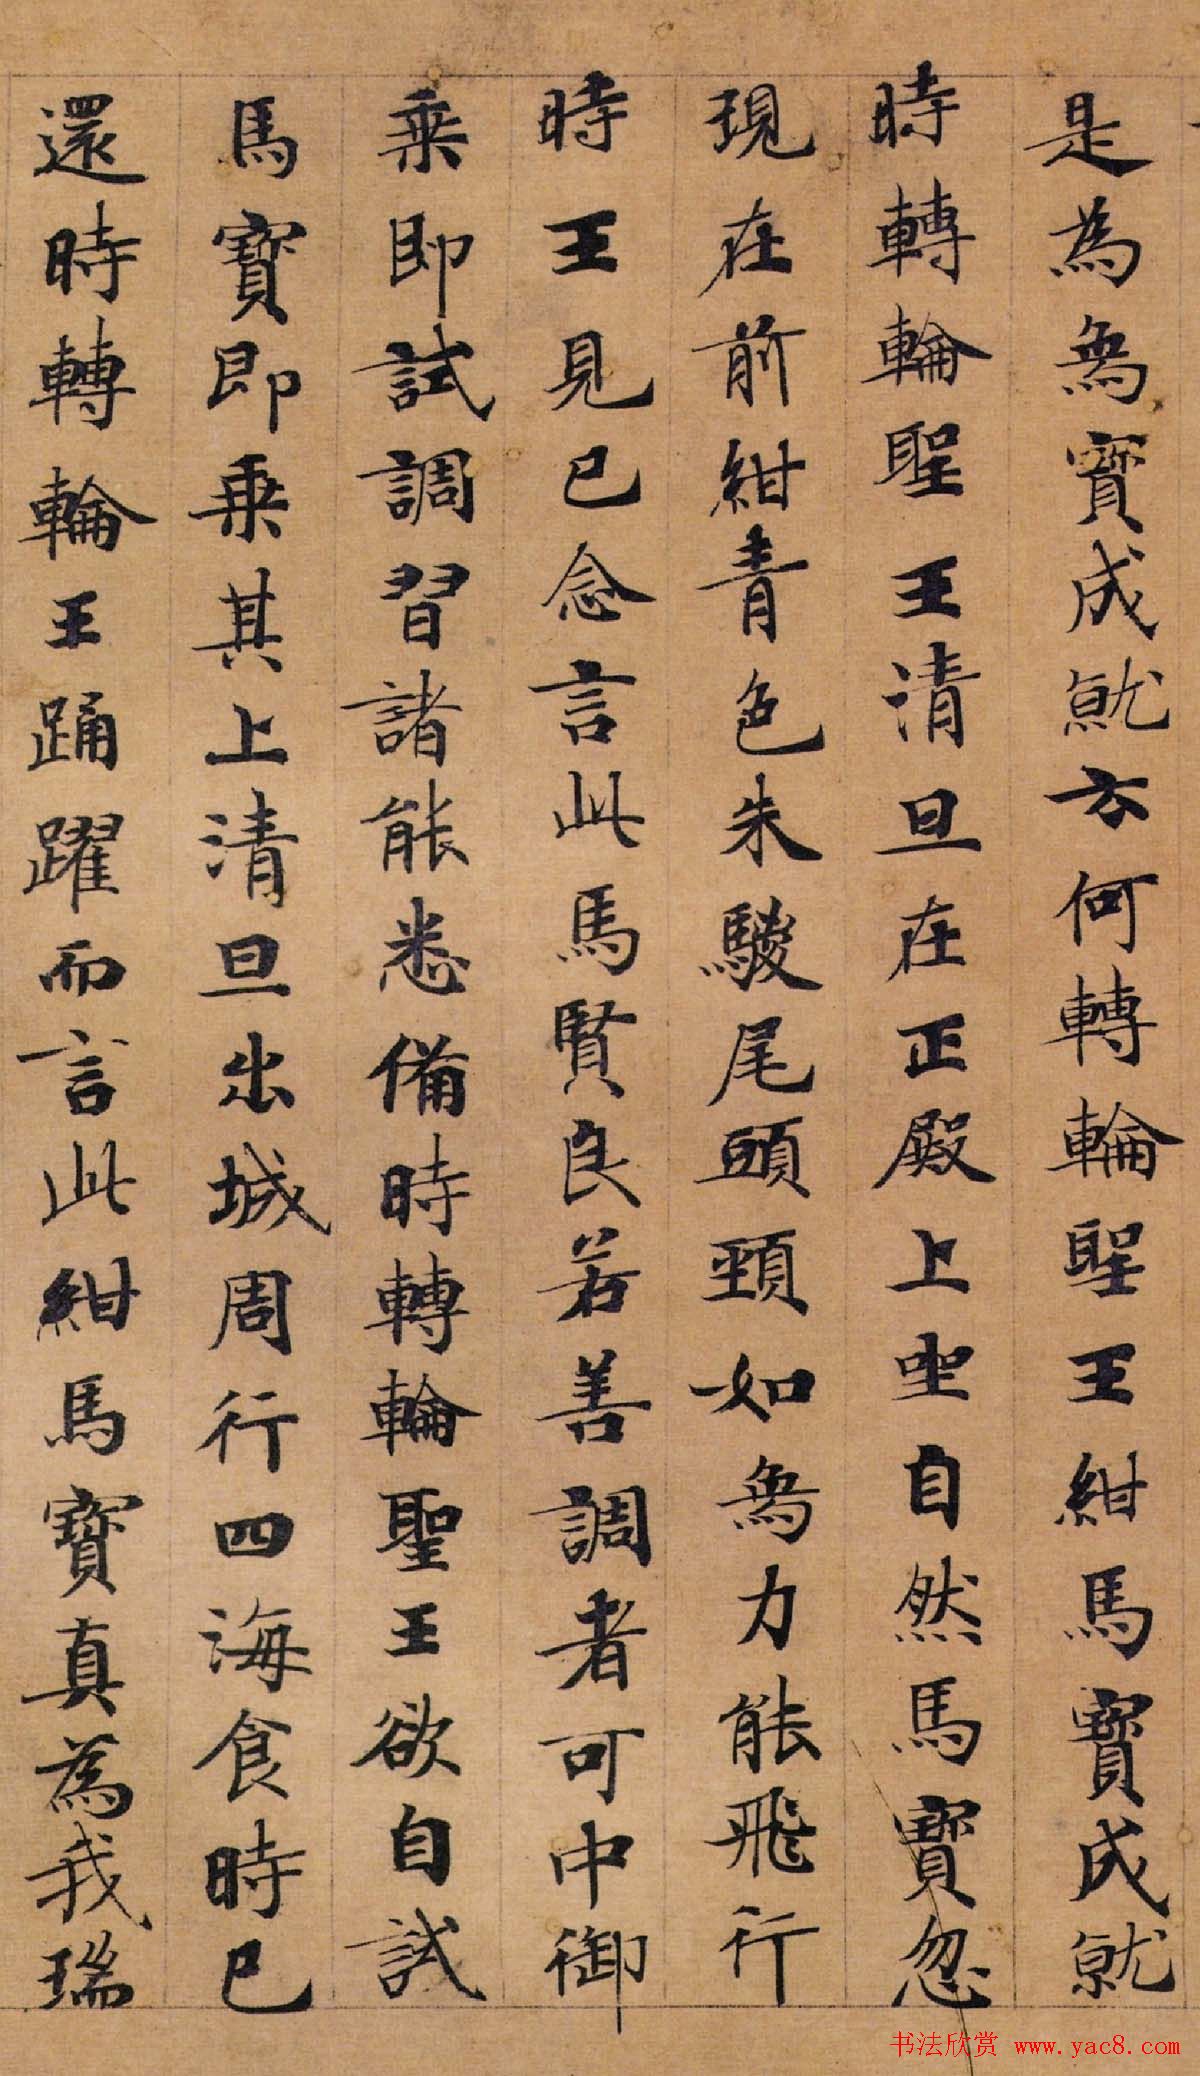 是為為寶成就云何轉輪聖王紺馬寶成就
時轉輪聖王清旦在正殿上坐自然馬寶忽
現在前紺青色朱騣尾頭頸如為力能飛行
時王見已念言此馬賢良若善調者可中御
乘即試調習諸能悉備時轉輪聖王欲自試
馬寶即乘其上清旦出城周行四海食時已
還時轉輪王踊躍而言此紺馬寶真為我瑞
书法欣赏 www.yac8.com